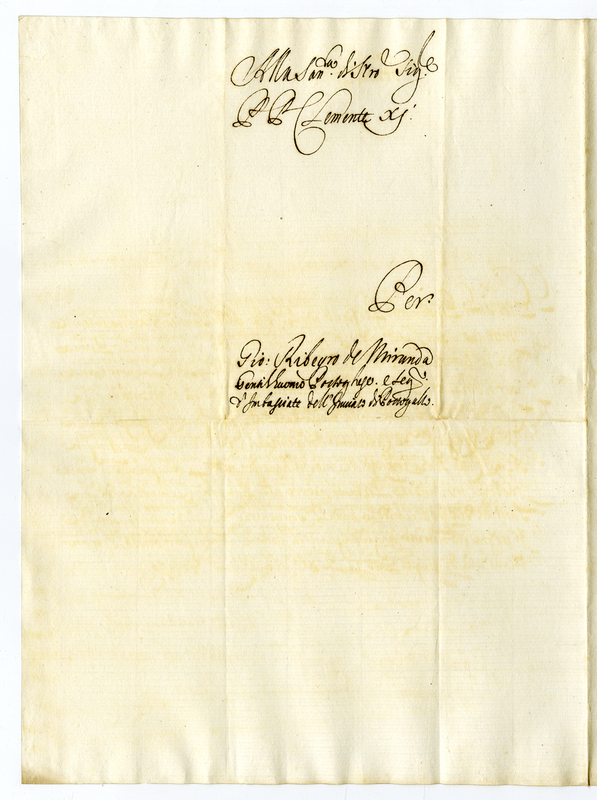 Alla San.ta di N'ro Sig.e
P P Clemente XJ.
Per
Gio: Ribeyro de Miranda
Gentilhuomo Portoghese. e Seg.
d'Imbasciate dell'Inviato di Portogallo.